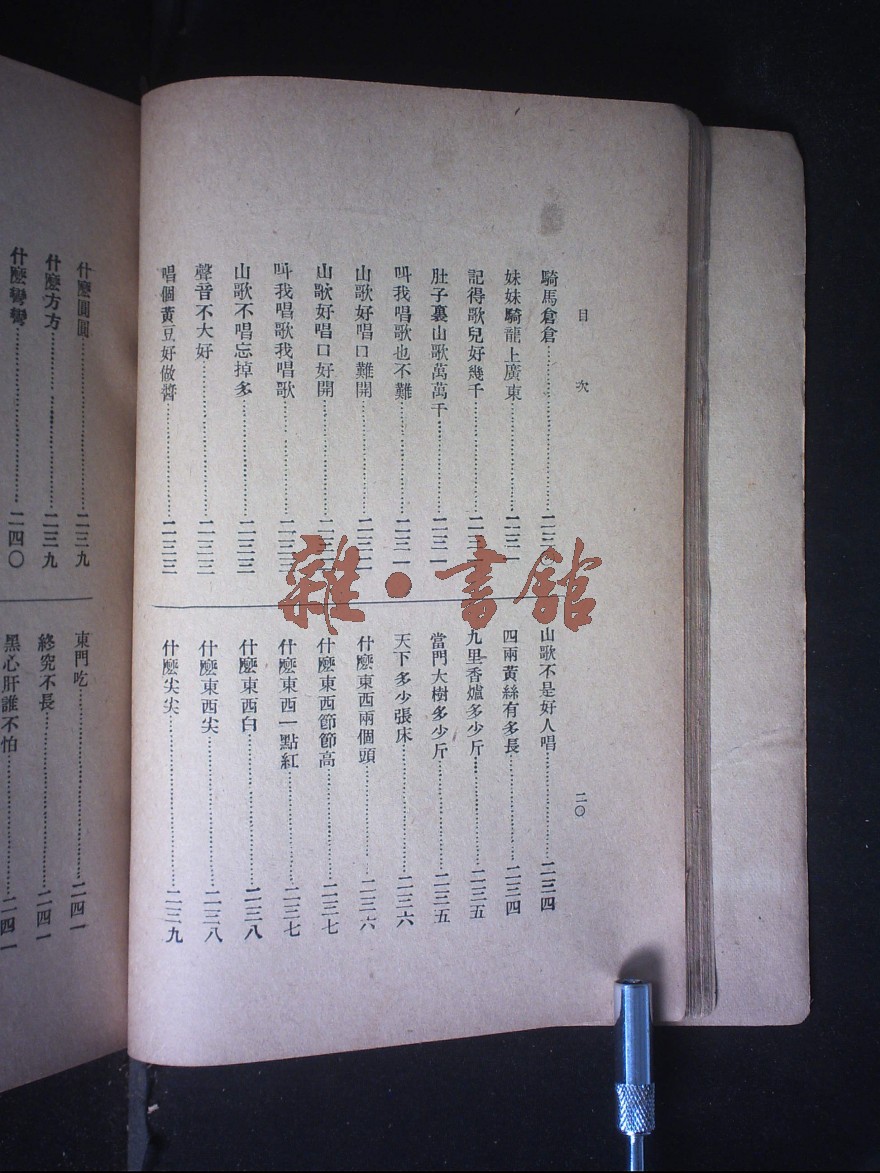 目次 二〇
騎馬倉倉
妹妹騎龍上廣東
記得歌兒好幾千
肚子裏山歌萬萬千 二三一
叫我唱歌也不難 二三一
山歌好唱口難開 二三二
山歌好唱口好開
叫我唱歌我唱歌
山歌不唱忘掉多 二三三
聲音不大好 二三三
唱個黃豆好做醬 二三三
山歌不是好人唱 二三四
四兩黃絲有多長 二三四
九里香爐多少斤 二三五
當門大樹多少斤 二三五
天下多少張床 二三六
什麼東西兩個頭 二三六
什麼東西節節高 二三七
什麼東西一點紅 二三七
什麼東西白 二三八
什麼東西尖 二三八
什麼尖尖 二三九
什麼圓圓 二三九
什麼方方 二三九
什麼彎彎 二四〇
東門吃 二四一
終究不長 二四一
黑心肝誰不怕 二四一
雜·書館